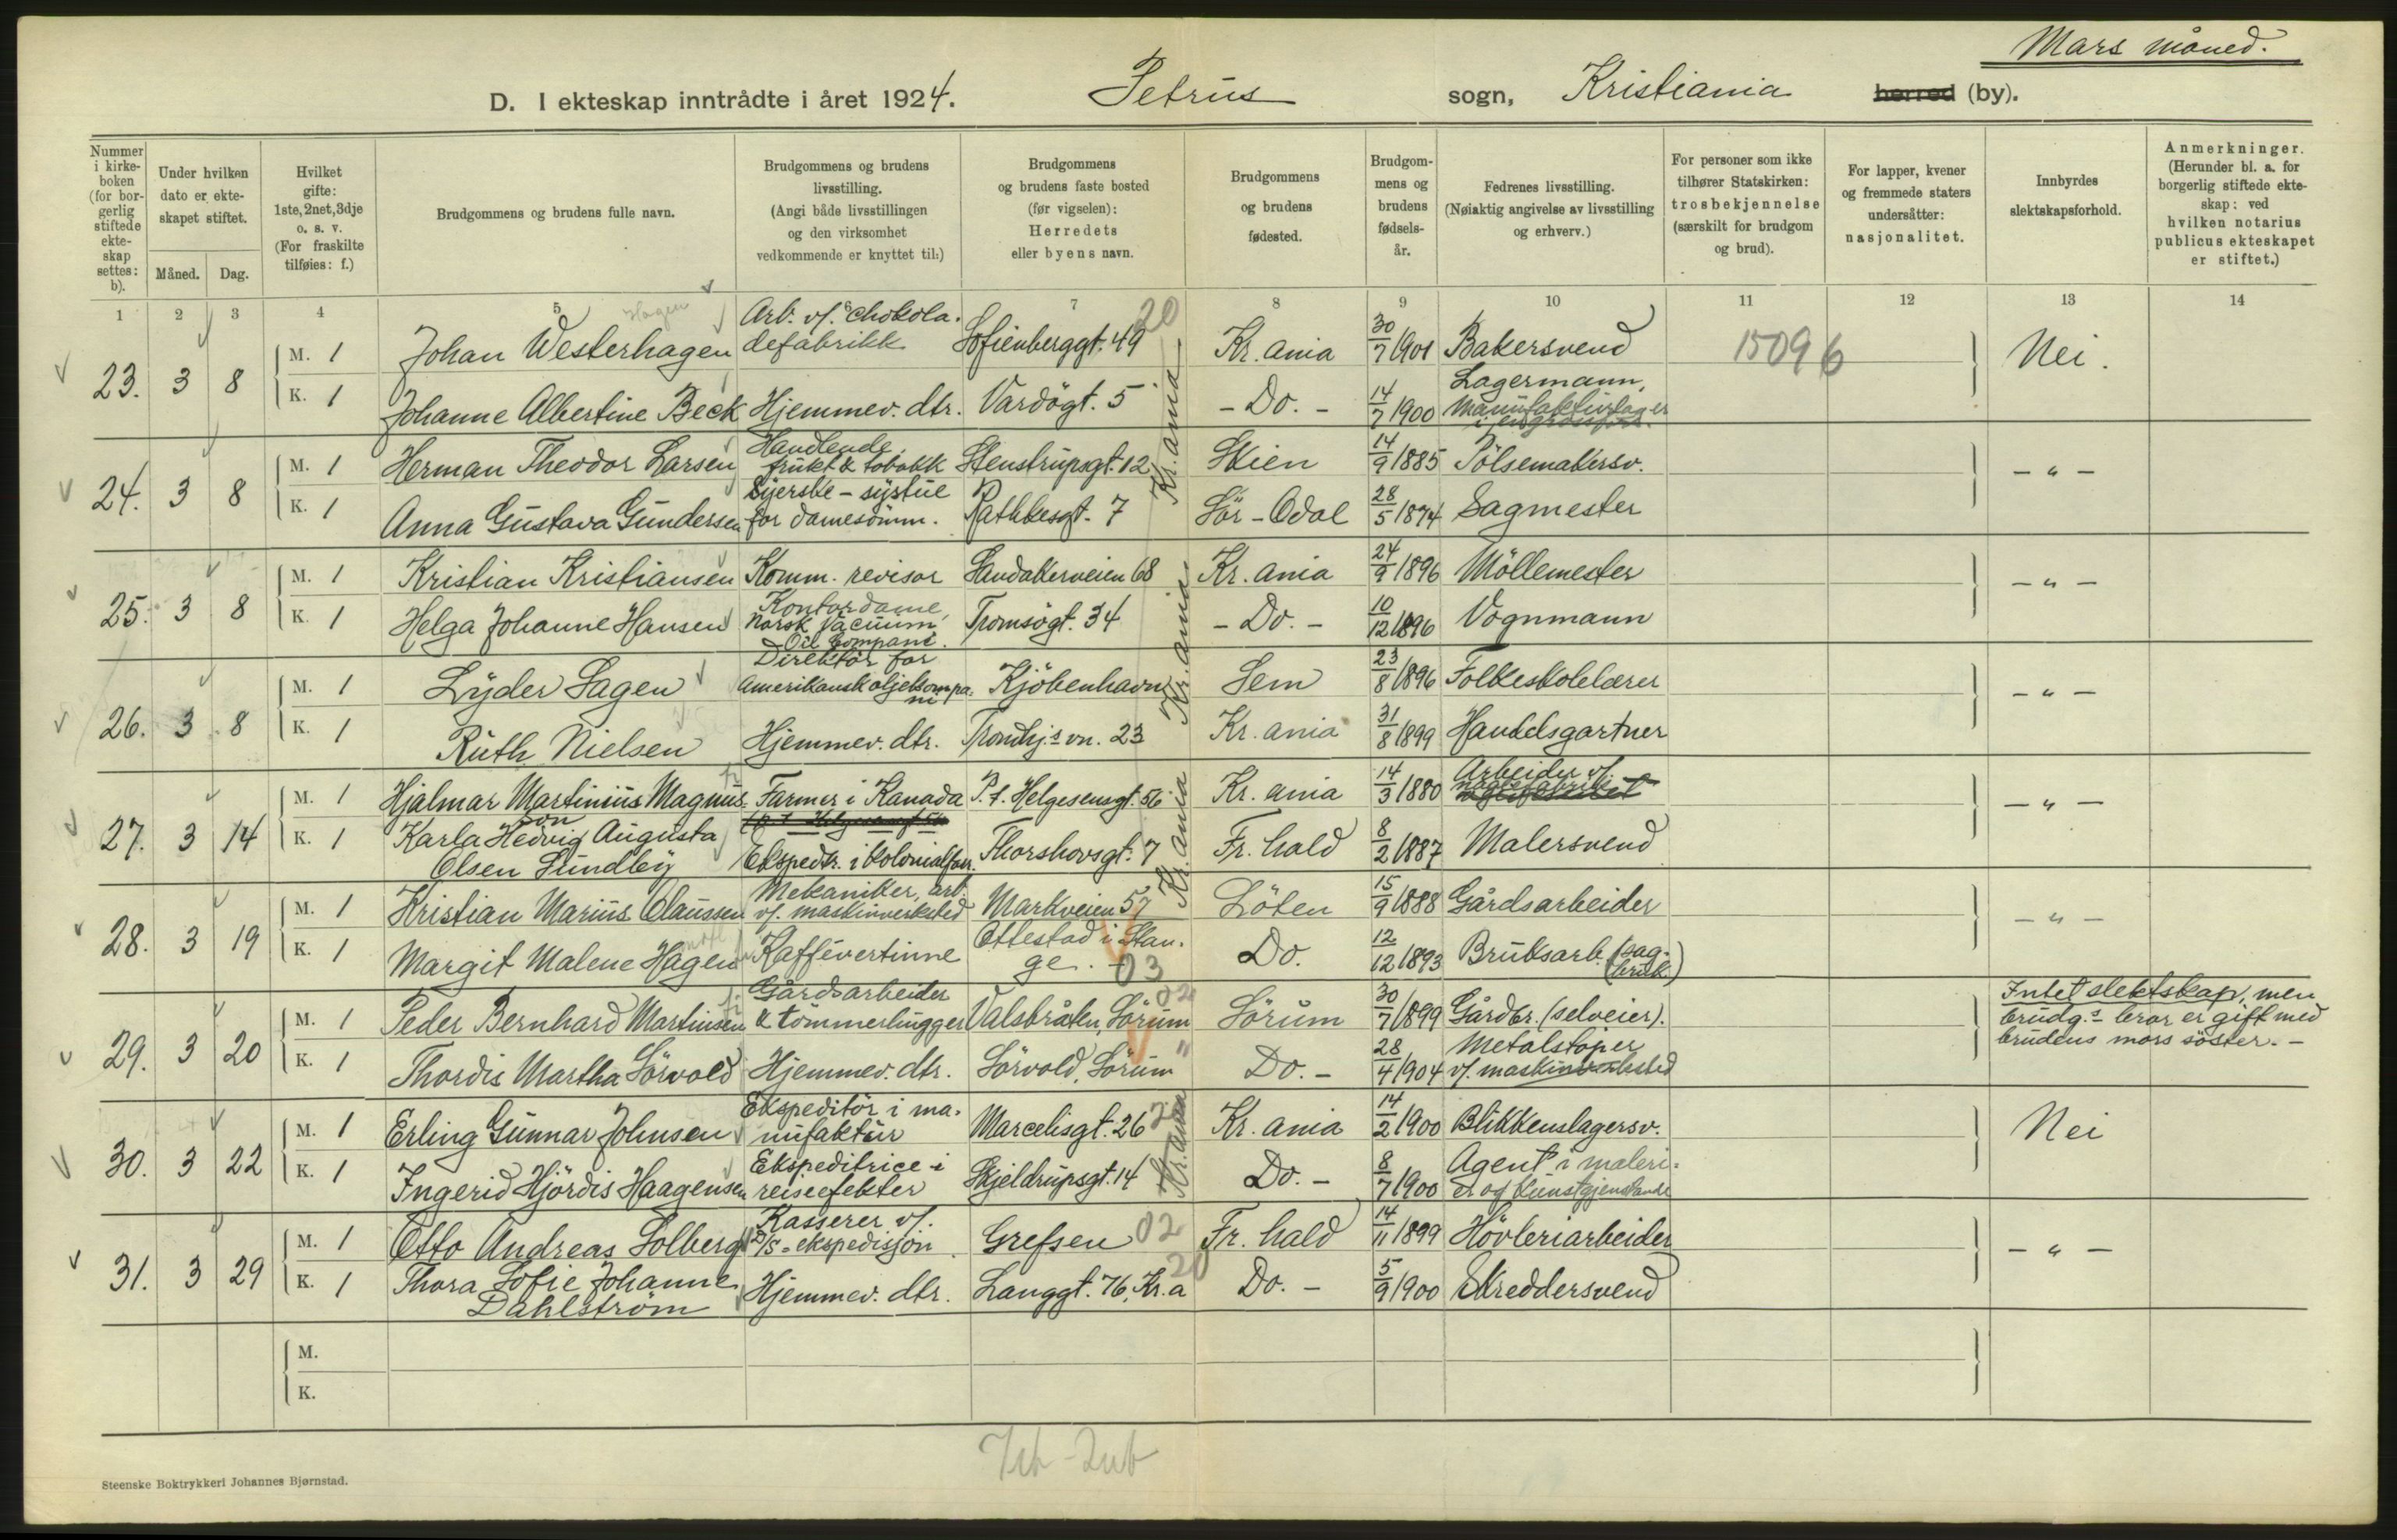 Mars måned.
D. I ekteskap inntrådte i året 1924. Petrus sogn, Kristiania herred (by).
Nummer i kirkeboken (for borgerlig stiftede ekteskap settes: b).
Under hvilken dato er ekteskapet stiftet.
Måned. Dag.
Hvilket gifte: 1ste, 2net, 3dje o. s. v. (For fraskilte tilføies: f.)
Brudgommens og brudens fulle navn.
Brudgommens og brudens livsstilling. (Angi både livsstillingen og den virksomhet vedkommende er knyttet til:)
Brudgommens og brudens faste bosted (før vigselen): Herredets eller byens navn.
Brudgommens og brudens fødested.
Brudgommens og brudens fødselsår.
Fedrenes livsstilling. (Nøiaktig angivelse av livsstilling og erhverv.)
For personer som ikke tilhører Statskirken: trosbekjennelse (særskilt for brudgom og brud).
For lapper, kvener og fremmede staters undersåtter: nasjonalitet.
Innbyrdes slektskapsforhold.
Anmerkninger. (Herunder bl. a. for borgerlig stiftede ekteskap: ved hvilken notarius publicus ekteskapet er stiftet.)
1 2 3 4 5 7 8 9 10 11 12 13 14
Hagen
20
23. 3 8 M. 1 Johan Westerhagen Arb. v/. chokoladefabrikk Sofienberggt. 49 Kr.ania 30/7 1901 Bakersvend 15096 Nei.
K. 1 Johanne Albertine Beck Hjemmev. dtr. Vardögt. 5 - Do. - 14/7 1900 Lagermann, manufakturlager
Kr.ania
24. 3 8 M. 1 Herman Theodor Larsen Handlende, frukt & tobakk Stenstrupsgt. 12 Skien 14/9 1885 Pölsemakersv. - " -
K. 1 Anna Gustava Gundersen Syerske - systue for damesömm. Rathkesgt. 7 Sör-Odal 28/5 1874 Sagmester
25. 3 8 M. 1 Kristian Kristiansen Komm. revisor Sandakerveien 68 Kr.ania 24/9 1896 Möllemester - " -
K. 1 Helga Johanne Hansen Kontordame, Norsk Vacuum Oil Compani. Tromsögt. 34 - Do. - 10/12 1896 Vognmann
Kr.ania
26. 3 8 M. 1 Lyder Sagen Direktör for Amerikansk oljekompani Kjöbenhavn Sem 23/8 1896 Folkeskolelærer - " -
K. 1 Ruth Nielsen Hjemmev. dtr. Trondhj.s vn. 23 Kr.ania 31/8 1899 Handelsgartner
27. 3 14 M. 1 Hjalmar Martinius Magnusson Farmer i Kanada P.t. Helgesensgt. 56 Kr.ania 14/3 1880 Arbeider v/. - " -
K. 1 Karla Hedvig Augusta Olsen Sundby Ekspedtr. i kolonialforr. Thorshovsgt. 7 Fr.hald 8/2 1887 Malersvend
Kr.ania
28. 3 19 M. 1 Kristian Marius Olaussen Mekaniker, arb. v/. maskinverksted Markveien 57 Löten 15/9 1888 Gårdsarbeider - " -
K. 1 Margit Malene Hagen Kaffévertinne Ottestad i Stange. 03 Do. 12/12 1893 Bruksarb. (sagbruk)
29. 3 20 M. 1 Peder Bernhard Martinsen Gårdsarbeider & tömmerhugger Valsbråten, Sörum 02 Sörum 30/7 1899 Gårdbr. (selveier). Intet slektskap, men brudg.s bror er gift med brudens mors söster. -
K. 1 Thordis Martha Sörvold Hjemmev. dtr. Sörvold, Sörum " Do. - 28/4 1904 Metalstöper v/. maskinverksted
30. 3 22 M. 1 Erling Gunnar Johnsen Ekspeditör i manufaktur Marcelisgt. 26 Kr.ania 14/2 1900 Blikkenslagersv. Nei
K. 1 Ingerid Hjördis Haagensen Ekspeditrice i reiseefekter Skjeldrupsgt. 14 Do. - 8/7 1900 Agent i malerier og kunstgjenstande
Kr.ania
31. 3 29 M. 1 Otto Andreas Solberg Kasserer v/. D/S-ekspedisjon Grefsen 02 Fr.hald 14/11 1899 Hövleriarbeider - " -
K. 1 Thora Sofie Johanne Dahlström Hjemmev. dtr. Langgt. 76, Kr.a 20 Do. - 5/9 1900 Skreddersvend
M.
K.
Steenske Boktrykkeri Johannes Bjørnstad.